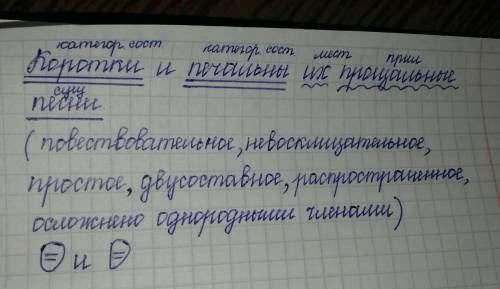 категор. сост категор. сост мест прил
Коротки и печальны их прощальные
сущ
песни
(повествовательное, невосклицательное,
простое, двусоставное, распространенное,
осложнено однородными членами)
и